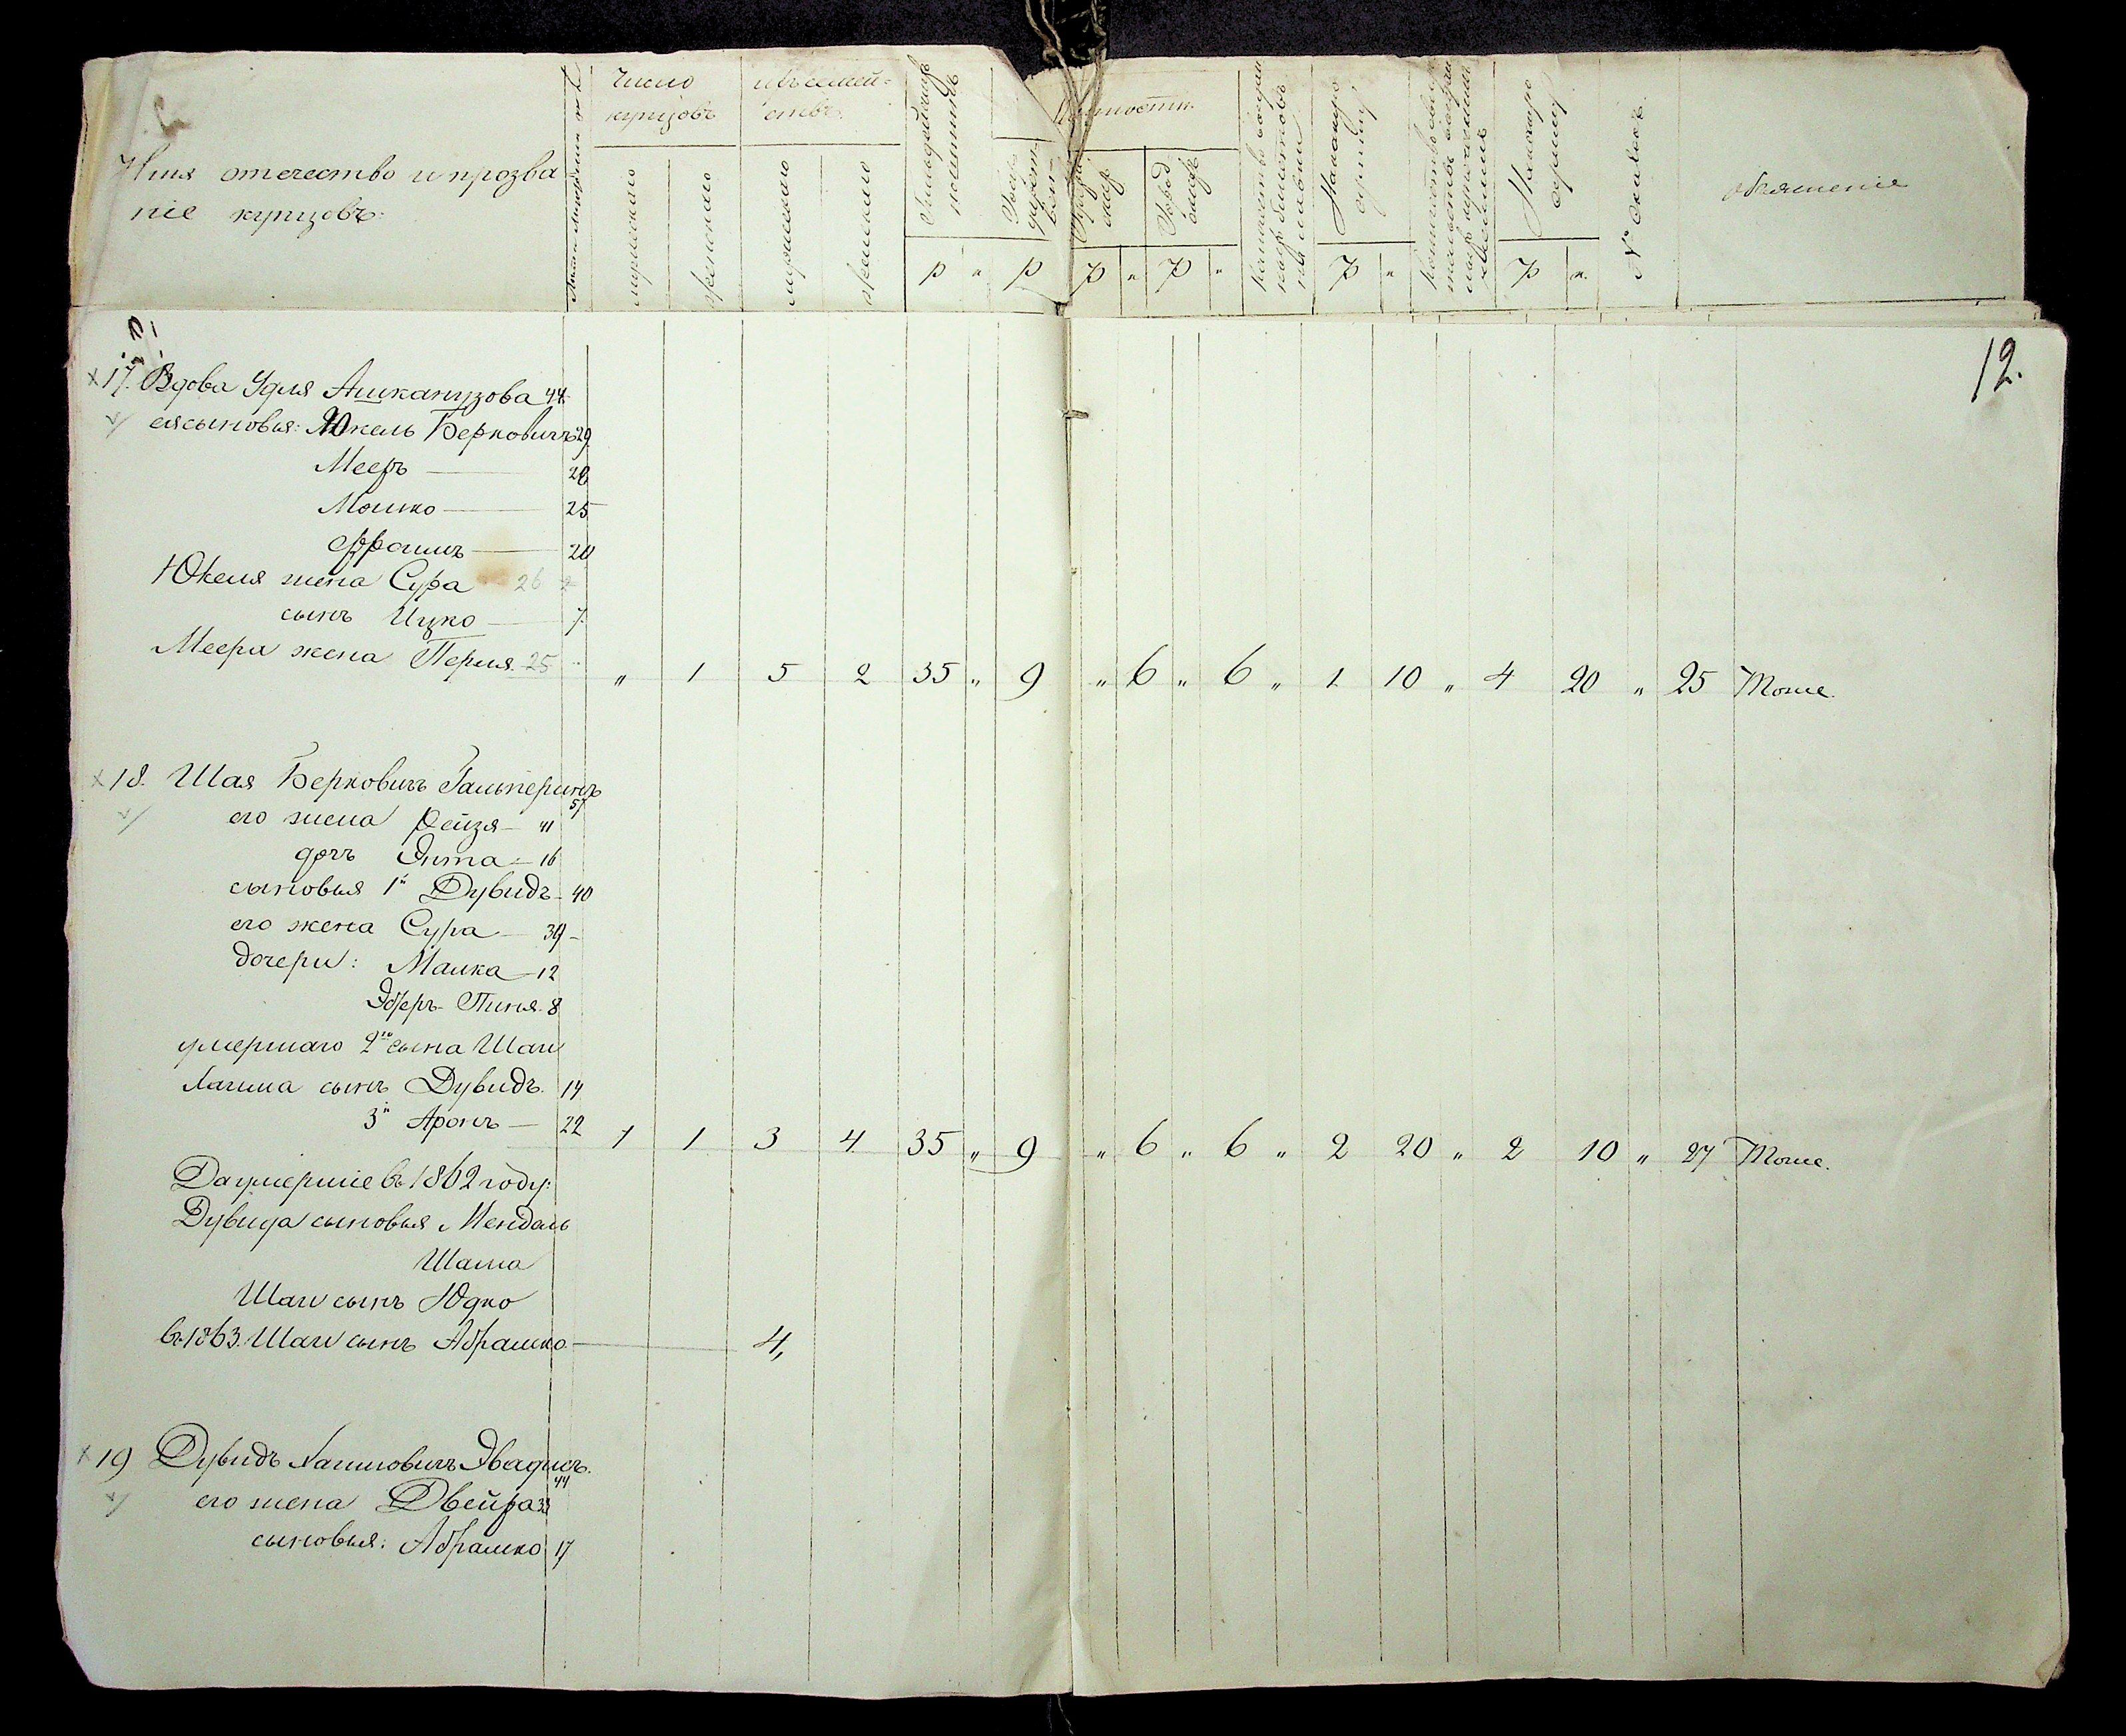 Имя отечество и прозва
ніе купцовъ:
Число
купцовъ
и ихъ семей-
ствъ.
мужескаго
женскаго
мужескаго
женскаго
р " р
р " р "
На какую
сумму
р "
На какую
сумму
р "
№ оклада
объясненіе
12.
17. Вдова Удля Ашканузова 44
ея сыновья: Юкель Берковичъ 29
Мееръ — 28
Мошко — 25
Фроимъ — 20
Юкеля жена Сура 26
сынъ Ицко — 7
Меера жена Перля 25
" 1 5 2 35 " 9 " 6 " 6 " 1 10 " 4 20 " 25 Тоже.
18. Шая Берковичъ Гальперинъ 57
его жена Рейзя — 41
дочь Энта — 16
сыновья 1й Дувидъ — 40
его жена Сура — 39 —
дочери: Малка — 12
Эстеръ-Пиня. 8
умершаго 2го сына Шаи
Хаима сынъ Дувидъ. 14
3й Аронъ — 22
1 1 3 4 35 " 9 " 6 " 6 " 2 20 " 2 10 " 27 Тоже.
Да умершіе въ 1862 году:
Дувида сыновья Мендель
Шама
Шаи сынъ Юдко
въ 1863. Шаи сынъ Абрашко — 4,
19 Дувидъ Хаимовичъ Эвадисъ. 44
его жена Двейра 33
сыновья: Абрашко 17